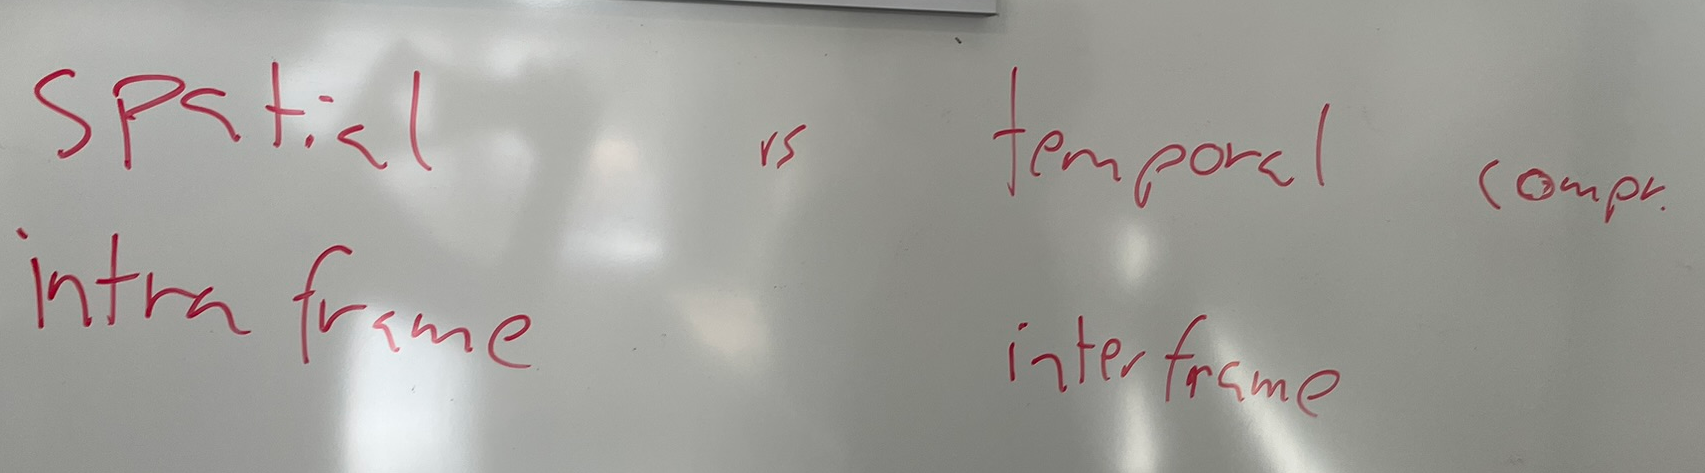 spatial vs temporal compr.
intra frame interframe